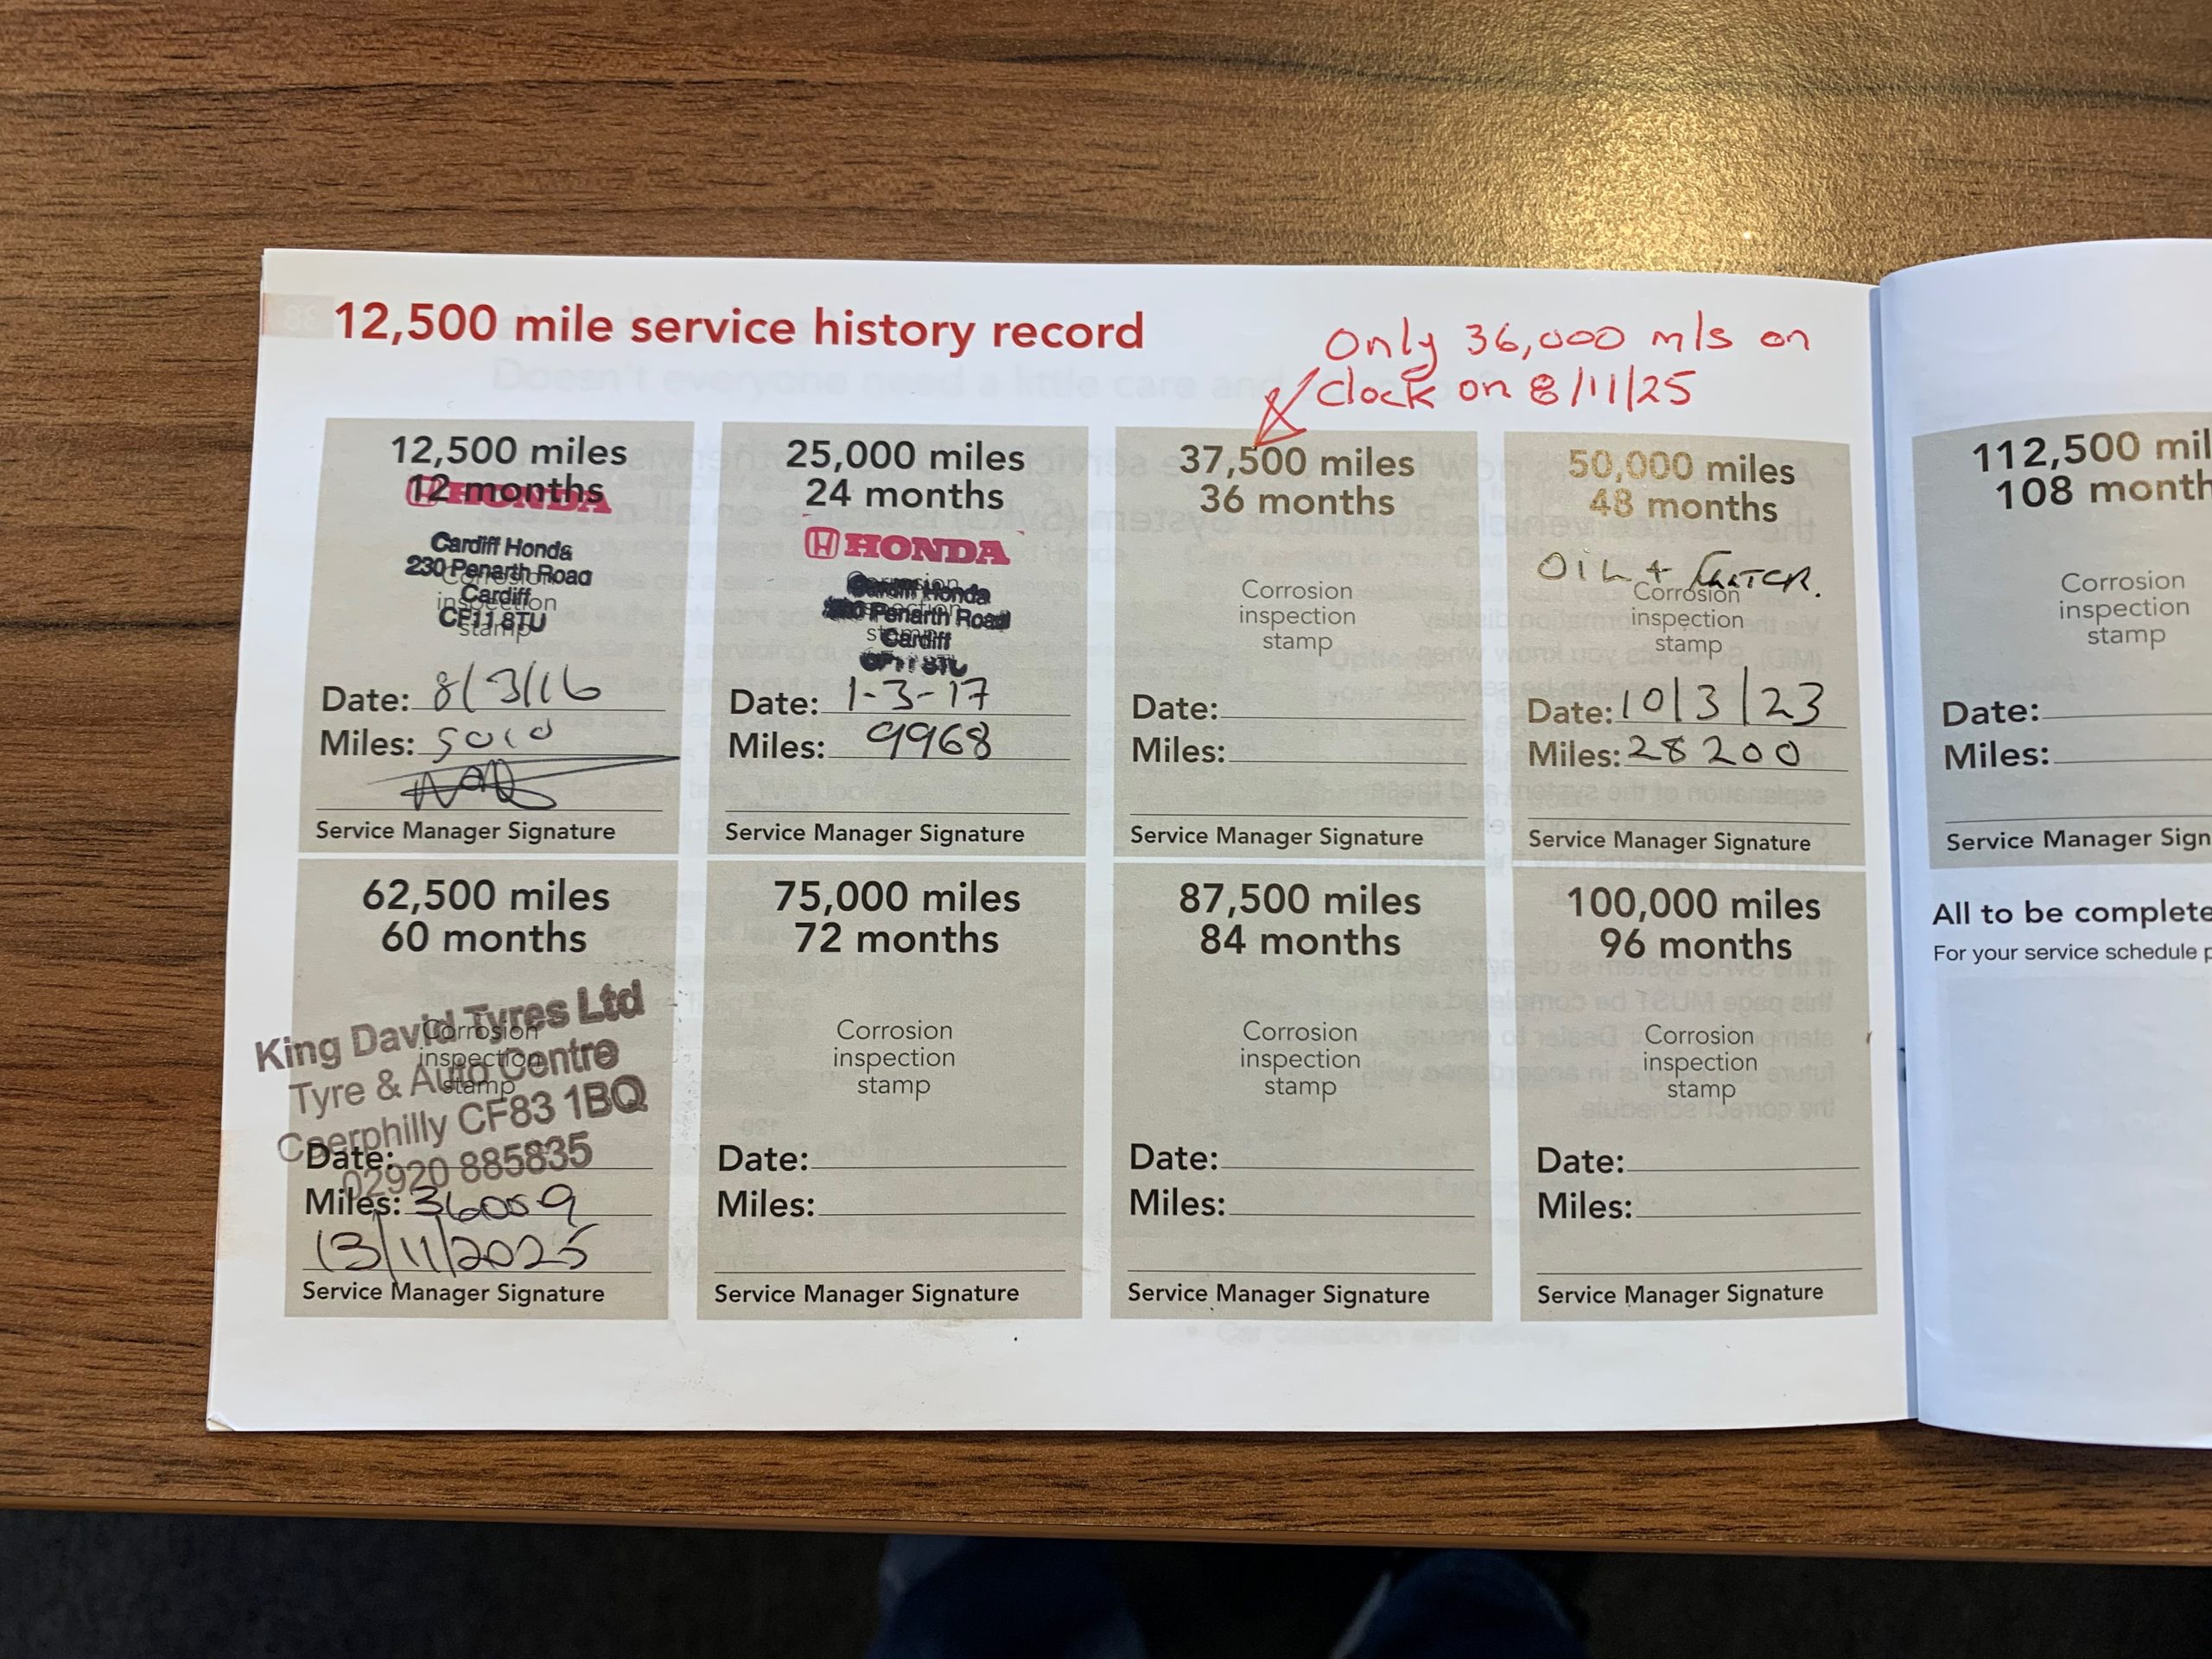 12,500 mile service history record
Only 36,000 mls on
clock on 8/11/25
12,500 miles
12 months
HONDA
Cardiff Honda
230 Penarth Road
Cardiff
CF11 8TU
Corrosion
inspection
stamp
Date: 8/3/16
Miles: 5010
Service Manager Signature
25,000 miles
24 months
HONDA
Cardiff Honda
230 Penarth Road
Cardiff
CF11 8TU
Corrosion
inspection
stamp
Date: 1-3-17
Miles: 9968
Service Manager Signature
37,500 miles
36 months
Corrosion
inspection
stamp
Date:
Miles:
Service Manager Signature
50,000 miles
48 months
OIL +
Corrosion
inspection
stamp
Date: 10/3/23
Miles: 28200
Service Manager Signature
112,500 mil
108 month
Corrosion
inspection
stamp
Date:
Miles:
Service Manager Sign
All to be complete
For your service schedule p
62,500 miles
60 months
King David Tyres Ltd
Tyre & Auto Centre
Caerphilly CF83 1BQ
02920 885835
Corrosion
inspection
stamp
Date:
Miles: 36009
13/11/2025
Service Manager Signature
75,000 miles
72 months
Corrosion
inspection
stamp
Date:
Miles:
Service Manager Signature
87,500 miles
84 months
Corrosion
inspection
stamp
Date:
Miles:
Service Manager Signature
100,000 miles
96 months
Corrosion
inspection
stamp
Date:
Miles:
Service Manager Signature